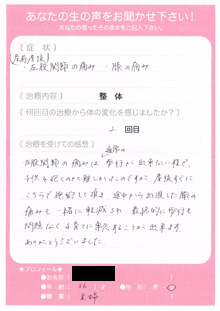 あなたの生の声をお聞かせ下さい!
あなたの思ったそのままをご記入下さい。
〔症状〕
(産前産後)
・左股関節の痛み ・膝の痛み
〔治療内容〕 整体
〔何回目の治療から体の変化を感じましたか?〕
2 回目
〔治療を受けての感想〕
左股関節の痛みは 歩行が出来ない程で、
子供を抱くのが難しかったのですが、産後すぐに
こちらで 施術して頂き 途中から出現した膝の
痛みも 一緒に軽減され、最終的に歩行も
問題なく
ありがとうございました
★プロフィール★
●お名前
●年齢 36 才 ●性別:男・女
●職業 主婦